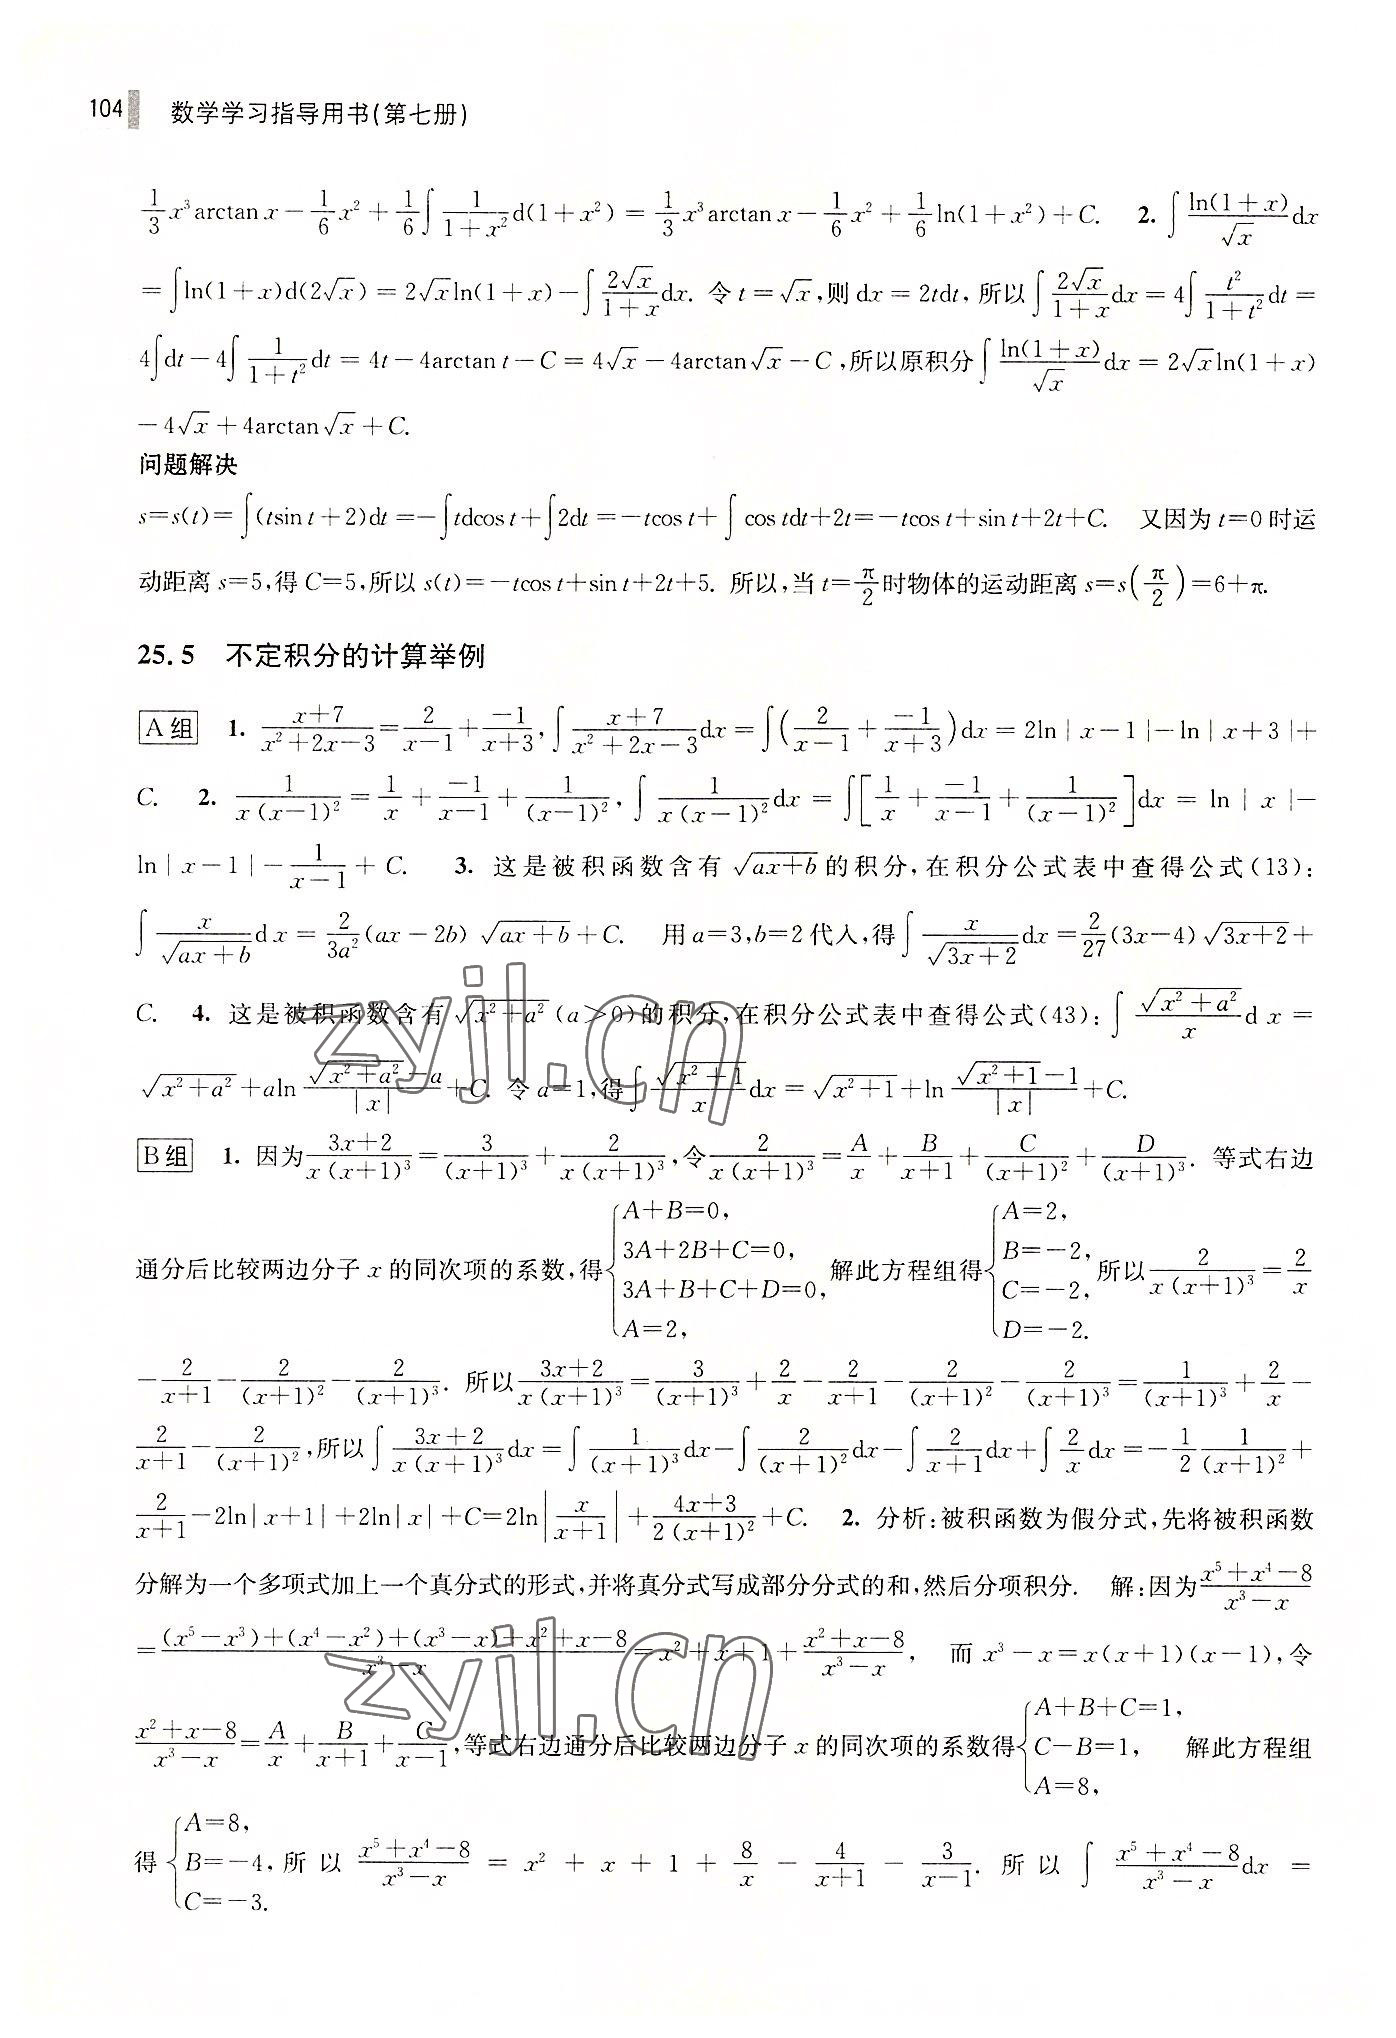 104 数学学习指导用书(第七册)
$\frac{1}{3}x^3\arctan x-\frac{1}{6}x^2+\frac{1}{6}\int\frac{1}{1+x^2}d(1+x^2)=\frac{1}{3}x^3\arctan x-\frac{1}{6}x^2+\frac{1}{6}\ln(1+x^2)+C.$ 2. $\int\frac{\ln(1+x)}{\sqrt{x}}dx$
$=\int\ln(1+x)d(2\sqrt{x})=2\sqrt{x}\ln(1+x)-\int\frac{2\sqrt{x}}{1+x}dx.$ 令 $t=\sqrt{x}$,则 $dx=2tdt$, 所以 $\int\frac{2\sqrt{x}}{1+x}dx=4\int\frac{t^2}{1+t^2}dt=$
$4\int dt-4\int\frac{1}{1+t^2}dt=4t-4\arctan t-C=4\sqrt{x}-4\arctan\sqrt{x}-C$,所以原积分 $\int\frac{\ln(1+x)}{\sqrt{x}}dx=2\sqrt{x}\ln(1+x)$
$-4\sqrt{x}+4\arctan\sqrt{x}+C.$
问题解决
$s=s(t)=\int(t\sin t+2)dt=-\int td\cos t+\int 2dt=-t\cos t+\int\cos tdt+2t=-t\cos t+\sin t+2t+C.$ 又因为 $t=0$ 时运
动距离 $s=5$,得 $C=5$,所以 $s(t)=-t\cos t+\sin t+2t+5.$ 所以,当 $t=\frac{\pi}{2}$时物体的运动距离 $s=s\left(\frac{\pi}{2}\right)=6+\pi.$
25.5 不定积分的计算举例
A组 1. $\frac{x+7}{x^2+2x-3}=\frac{2}{x-1}+\frac{-1}{x+3},\int\frac{x+7}{x^2+2x-3}dx=\int\left(\frac{2}{x-1}+\frac{-1}{x+3}\right)dx=2\ln|x-1|-\ln|x+3|+$
$C.$ 2. $\frac{1}{x(x-1)^2}=\frac{1}{x}+\frac{-1}{x-1}+\frac{1}{(x-1)^2},\int\frac{1}{x(x-1)^2}dx=\int\left[\frac{1}{x}+\frac{-1}{x-1}+\frac{1}{(x-1)^2}\right]dx=\ln|x|-$
$\ln|x-1|-\frac{1}{x-1}+C.$ 3. 这是被积函数含有 $\sqrt{ax+b}$ 的积分,在积分公式表中查得公式(13):
$\int\frac{x}{\sqrt{ax+b}}dx=\frac{2}{3a^2}(ax-2b)\sqrt{ax+b}+C.$ 用 $a=3,b=2$ 代入,得 $\int\frac{x}{\sqrt{3x+2}}dx=\frac{2}{27}(3x-4)\sqrt{3x+2}+$
$C.$ 4. 这是被积函数含有 $\sqrt{x^2+a^2}$ $(a>0)$的积分,在积分公式表中查得公式(43): $\int\frac{\sqrt{x^2+a^2}}{x}dx=$
$\sqrt{x^2+a^2}+a\ln\frac{\sqrt{x^2+a^2}-a}{|x|}+C.$ 令 $a=1$,得 $\int\frac{\sqrt{x^2+1}}{x}dx=\sqrt{x^2+1}+\ln\frac{\sqrt{x^2+1}-1}{|x|}+C.$
B组 1. 因为$\frac{3x+2}{x(x+1)^3}=\frac{3}{(x+1)^3}+\frac{2}{x(x+1)^3}$,令$\frac{2}{x(x+1)^3}=\frac{A}{x}+\frac{B}{x+1}+\frac{C}{(x+1)^2}+\frac{D}{(x+1)^3}.$ 等式右边
通分后比较两边分子 $x$ 的同次项的系数,得$\begin{cases}A+B=0,\\3A+2B+C=0,\\3A+B+C+D=0,\\A=2,\end{cases}$ 解此方程组得$\begin{cases}A=2,\\B=-2,\\C=-2,\\D=-2.\end{cases}$ 所以$\frac{2}{x(x+1)^3}=\frac{2}{x}$
$-\frac{2}{x+1}-\frac{2}{(x+1)^2}-\frac{2}{(x+1)^3}.$ 所以$\frac{3x+2}{x(x+1)^3}=\frac{3}{(x+1)^3}+\frac{2}{x}-\frac{2}{x+1}-\frac{2}{(x+1)^2}-\frac{2}{(x+1)^3}=\frac{1}{(x+1)^3}+\frac{2}{x}-$
$\frac{2}{x+1}-\frac{2}{(x+1)^2}$,所以 $\int\frac{3x+2}{x(x+1)^3}dx=\int\frac{1}{(x+1)^3}dx-\int\frac{2}{(x+1)^2}dx-\int\frac{2}{x+1}dx+\int\frac{2}{x}dx=-\frac{1}{2}\frac{1}{(x+1)^2}+$
$\frac{2}{x+1}-2\ln|x+1|+2\ln|x|+C=2\ln\left|\frac{x}{x+1}\right|+\frac{4x+3}{2(x+1)^2}+C.$ 2. 分析:被积函数为假分式,先将被积函数
分解为一个多项式加上一个真分式的形式,并将真分式写成部分分式的和,然后分项积分. 解:因为$\frac{x^5+x^4-8}{x^3-x}$
$=\frac{(x^5-x^3)+(x^4-x^2)+(x^3-x)+x^2+x-8}{x^3-x}=x^2+x+1+\frac{x^2+x-8}{x^3-x}$, 而 $x^3-x=x(x+1)(x-1)$,令
$\frac{x^2+x-8}{x^3-x}=\frac{A}{x}+\frac{B}{x+1}+\frac{C}{x-1}$,等式右边通分后比较两边分子 $x$ 的同次项的系数得$\begin{cases}A+B+C=1,\\C-B=1,\\A=8,\end{cases}$ 解此方程组
得$\begin{cases}A=8,\\B=-4,\\C=-3.\end{cases}$ 所以 $\frac{x^5+x^4-8}{x^3-x}=x^2+x+1+\frac{8}{x}-\frac{4}{x+1}-\frac{3}{x-1}.$ 所以 $\int\frac{x^5+x^4-8}{x^3-x}dx=$
zyjl.cn
zyjl.cn